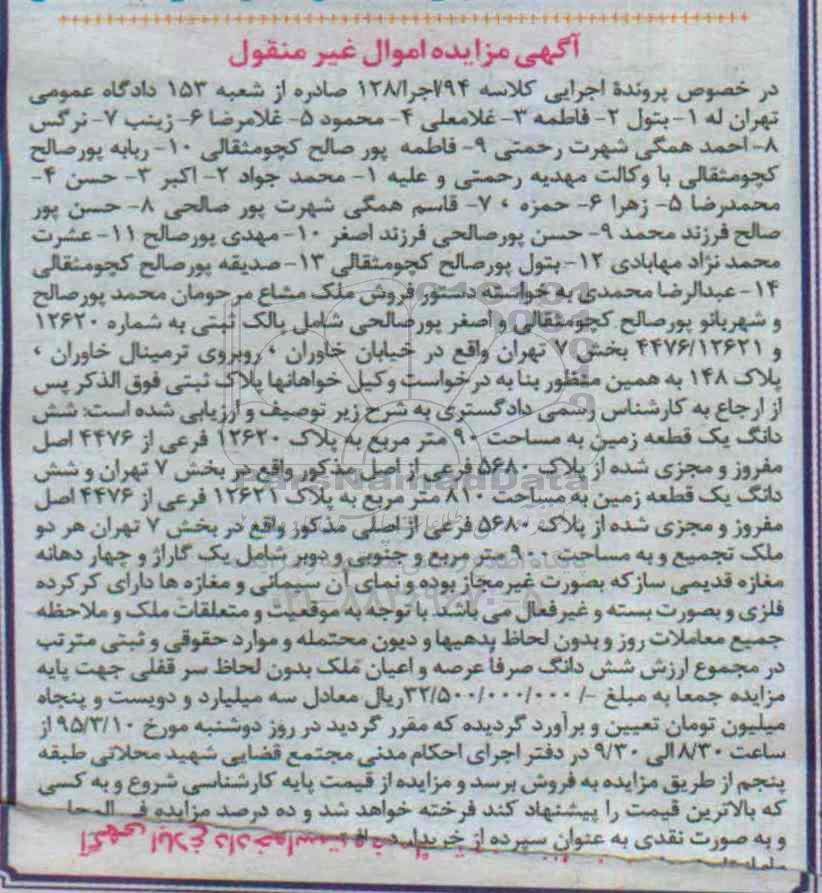 آگهی مزایده اموال غیر منقول
در خصوص پروندهٔ اجرایی کلاسه ۹۴/اجرا/۱۲۸ صادره از شعبه ۱۵۳ دادگاه عمومی
تهران له ۱- بتول ۲- فاطمه ۳- غلامعلی ۴- محمود ۵- غلامرضا ۶- زینب ۷- نرگس
۸- احمد همگی شهرت رحمتی ۹- فاطمه پور صالح کچومثقالی ۱۰- ربابه پورصالح
کچومثقالی با وکالت مهدیه رحمتی و علیه ۱- محمد جواد ۲- اکبر ۳- حسن ۴-
محمدرضا ۵- زهرا ۶- حمزه ، ۷- قاسم همگی شهرت پور صالحی ۸- حسن پور
صالح فرزند محمد ۹- حسن پورصالحی فرزند اصغر ۱۰- مهدی پورصالح ۱۱- عشرت
محمد نژاد مهابادی ۱۲- بتول پورصالح کچومثقالی ۱۳- صدیقه پورصالح کچومثقالی
۱۴- عبدالرضا محمدی به خواسته دستور فروش ملک مشاع مرحومان محمد پورصالح
و شهربانو پورصالح کچومثقالی و اصغر پورصالحی شامل پالک ثبتی به شماره ۱۲۶۲۰
و ۴۴۷۶/۱۲۶۲۱ بخش ۷ تهران واقع در خیابان خاوران ، روبروی ترمینال خاوران ،
پلاک ۱۴۸ به همین منظور بنا به درخواست وکیل خواهانها پلاک ثبتی فوق الذکر پس
از ارجاع به کارشناس رسمی دادگستری به شرح زیر توصیف و ارزیابی شده است: شش
دانگ یک قطعه زمین به مساحت ۹۰ متر مربع به پلاک ۱۲۶۲۰ فرعی از ۴۴۷۶ اصل
مفروز و مجزی شده از پلاک ۵۶۸۰ فرعی از اصل مذکور واقع در بخش ۷ تهران و شش
دانگ یک قطعه زمین به مساحت ۸۱۰ متر مربع به پلاک ۱۲۶۲۱ فرعی از ۴۴۷۶ اصل
مفروز و مجزی شده از پلاک ۵۶۸۰ فرعی از اصلی مذکور واقع در بخش ۷ تهران هر دو
ملک تجمیع و به مساحت ۹۰۰ متر مربع و جنوبی و دوبر شامل یک گاراژ و چهار دهانه
مغازه قدیمی ساز که بصورت غیرمجاز بوده و نمای آن سیمانی و مغازه ها دارای کرکره
فلزی و بصورت بسته و غیرفعال می باشد. با توجه به موقعیت و متعلقات ملک و ملاحظه
جمیع معاملات روز و بدون لحاظ بدهیها و دیون محتمله و موارد حقوقی و ثبتی مترتب
در مجموع ارزش شش دانگ صرفاً عرصه و اعیان ملک بدون لحاظ سر قفلی جهت پایه
مزایده جمعا به مبلغ -/۳۲/۵۰۰/۰۰۰/۰۰۰ ریال معادل سه میلیارد و دویست و پنجاه
میلیون تومان تعیین و برآورد گردیده که مقرر گردید در روز دوشنبه مورخ ۹۵/۳/۱۰ از
ساعت ۸/۳۰ الی ۹/۳۰ در دفتر اجرای احکام مدنی مجتمع قضایی شهید محلاتی طبقه
پنجم از طریق مزایده به فروش برسد و مزایده از قیمت پایه کارشناسی شروع و به کسی
که بالاترین قیمت را پیشنهاد کند فرخته خواهد شد و ده درصد مزایده
و به صورت نقدی به عنوان سپرده از خریدار
آگهی ابلاغ دادخواست
ParsNamadData